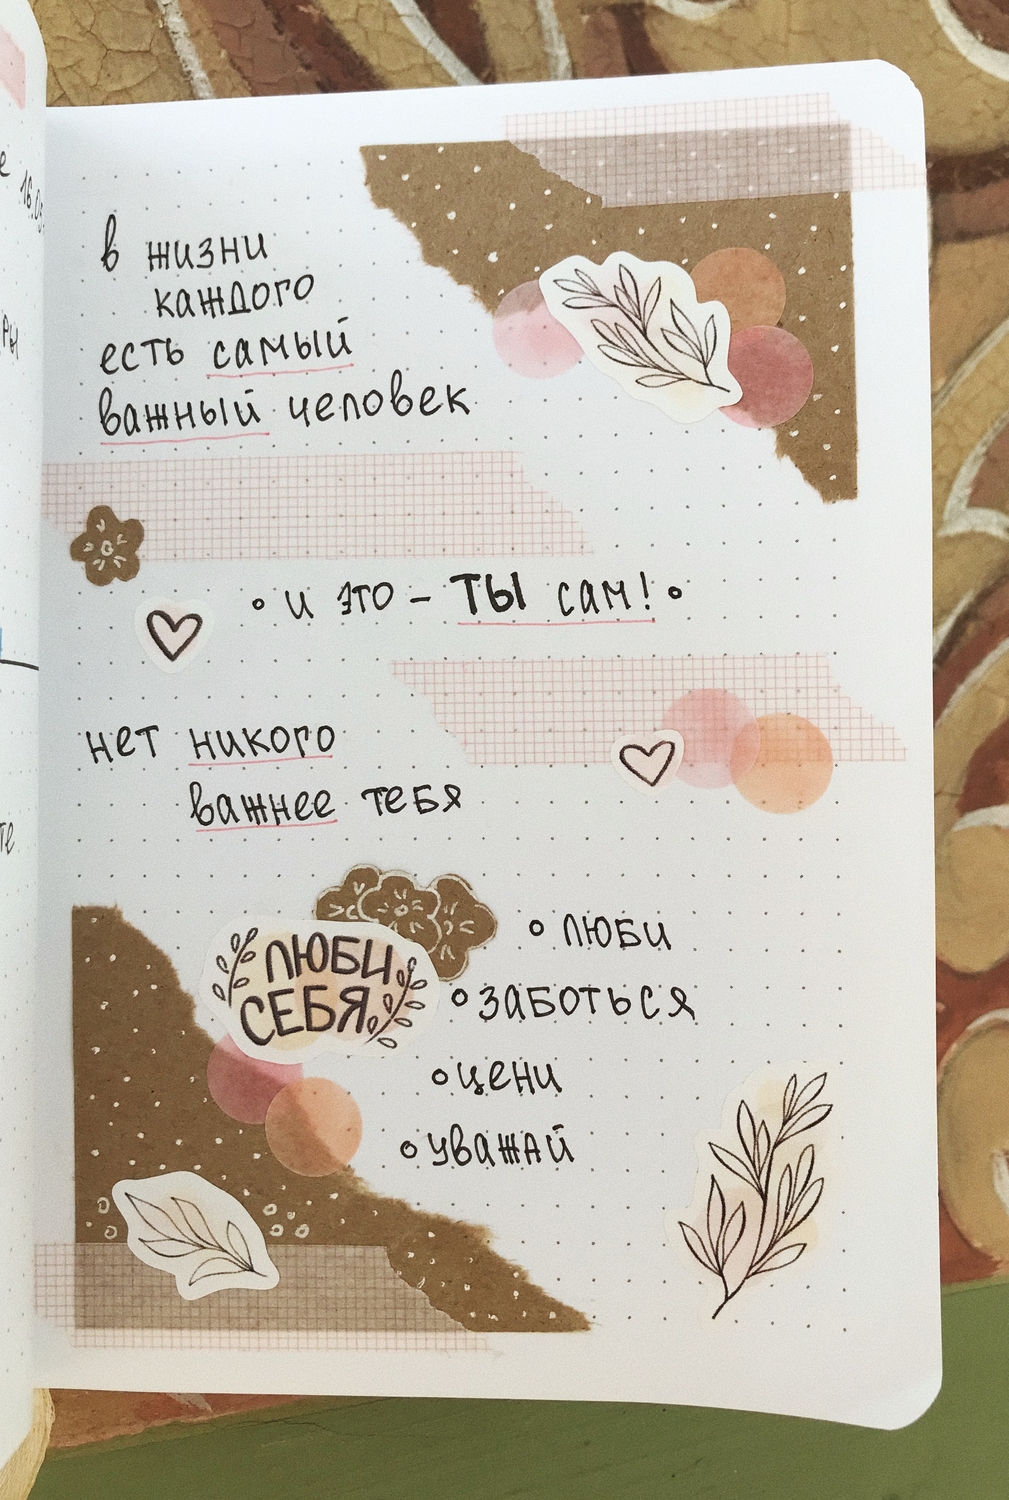 е 16.05
ры
те
в жизни
каждого
есть самый
важный человек
и это – ТЫ сам!
нет никого
важнее тебя
ЛЮБИ
СЕБЯ
люби
заботься
цени
уважай